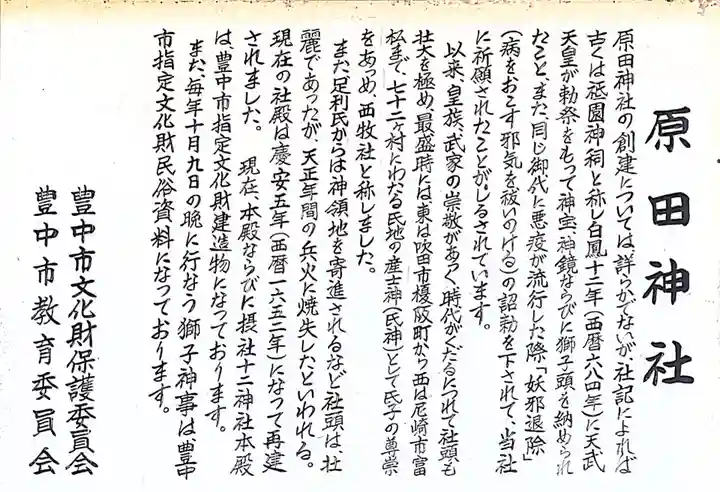 原田神社
原田神社の創建については、詳らかでないが、社記によれば
古くは祗園神祠と称し白鳳十二年(西暦六八四年)に天武
天皇が勅祭をもって神宝、神鏡ならびに獅子頭を納められ
たこと、また、同じ御代に悪疫が流行した際「妖邪退除」
(病をおこす邪気を祓いのける)の詔勅を下されて、当社
に祈願されたことがしるされています。
以来、皇族、武家の崇敬があつく、時代がくだるにつれて社頭も
壮大を極め、最盛時には、東は吹田市榎阪町から西は尼崎市富
松まで、七十二ヶ村にわたる民地の産土神(氏神)として氏子の尊崇
をあつめ、西牧社と称しました。
また足利氏からは神領地を寄進されるなど社頭は、壮
麗であったが、天正年間の兵火に焼失したといわれる。
現在の社殿は慶安五年(西暦一六五二年)になって再建
されました。 現在、本殿ならびに摂社十二神社本殿
は、豊中市指定文化財建造物になっております。
また、毎年十月九日の晩に行なう獅子神事は、豊中
市指定文化財民俗資料になっております。
豊中市文化財保護委員会
豊中市教育委員会